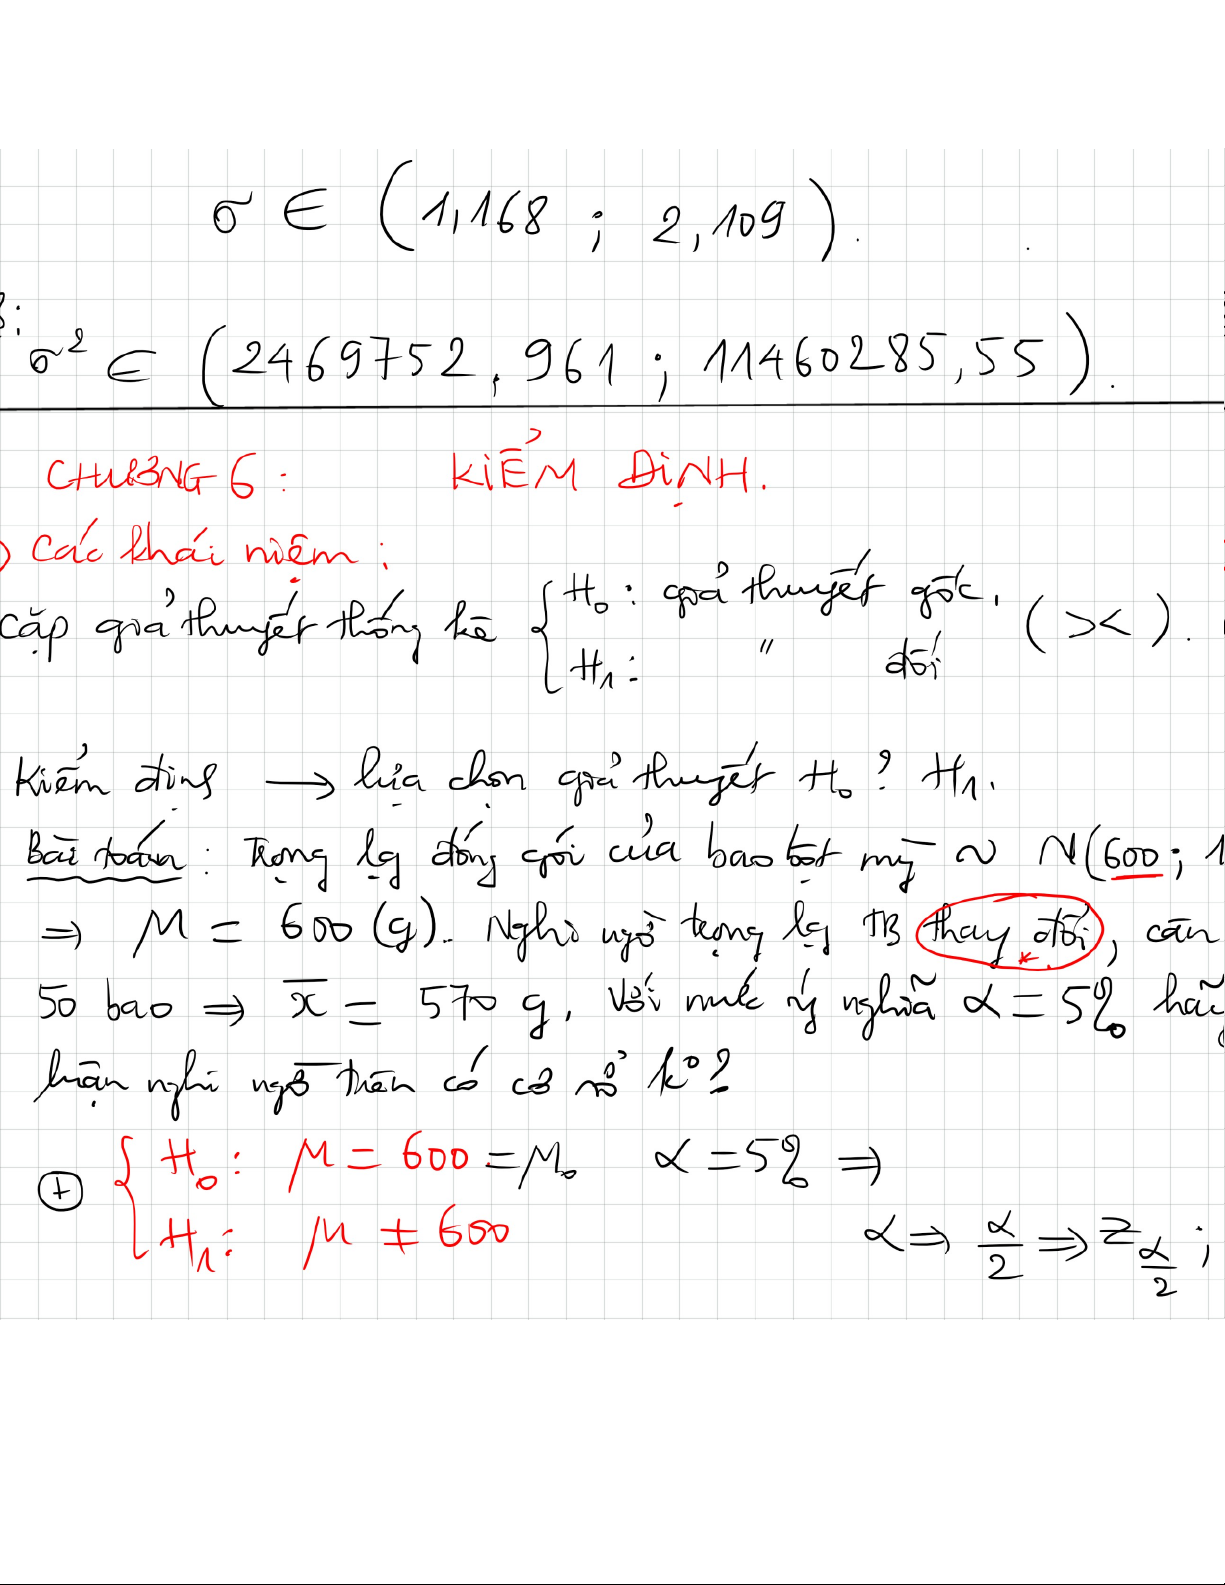 σ ∈ (1,168 ; 2,109).
σ² ∈ (2469752,961 ; 11460285,55).
CHƯƠNG 6 : KIỂM ĐỊNH.
Các khái niệm :
cặp giả thuyết thống kê { H₀ : giả thuyết gốc, (><).
H₁ : " đối
Kiểm định → lựa chọn giả thuyết H₀ ? H₁.
Bài toán : Trọng lg đóng gói của bao bột mỳ ~ N(600; 1
⇒ μ = 600 (g). Nghi ngờ trọng lg TB thay đổi, cân
50 bao ⇒ x̄ = 570 g, Với mức ý nghĩa α = 5% hãy
luận nghi ngờ trên có cơ sở k°?
⊕ { H₀ : μ = 600 = μ₀ α = 5% ⇒
H₁ : μ ≠ 600 α ⇒ α/2 ⇒ z_{α/2} ;